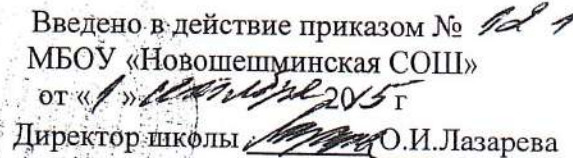 Введено в действие приказом №
МБОУ «Новошешминская СОШ»
от «1» сентября 2015 г
Директор школы О.И.Лазарева